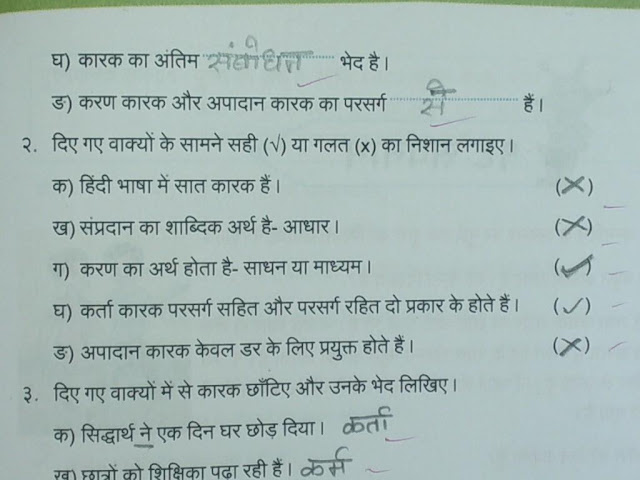 घ) कारक का अंतिम संबोधन भेद है।
ङ) करण कारक और अपादान कारक का परसर्ग से हैं।
२. दिए गए वाक्यों के सामने सही (√) या गलत (x) का निशान लगाइए।
क) हिंदी भाषा में सात कारक हैं। (×)
ख) संप्रदान का शाब्दिक अर्थ है- आधार। (×)
ग) करण का अर्थ होता है- साधन या माध्यम। (✓)
घ) कर्ता कारक परसर्ग सहित और परसर्ग रहित दो प्रकार के होते हैं। (✓)
ङ) अपादान कारक केवल डर के लिए प्रयुक्त होते हैं। (×)
३. दिए गए वाक्यों में से कारक छाँटिए और उनके भेद लिखिए।
क) सिद्धार्थ ने एक दिन घर छोड़ दिया। कर्ता
ख) छात्रों को शिक्षिका पढ़ा रही हैं। कर्म